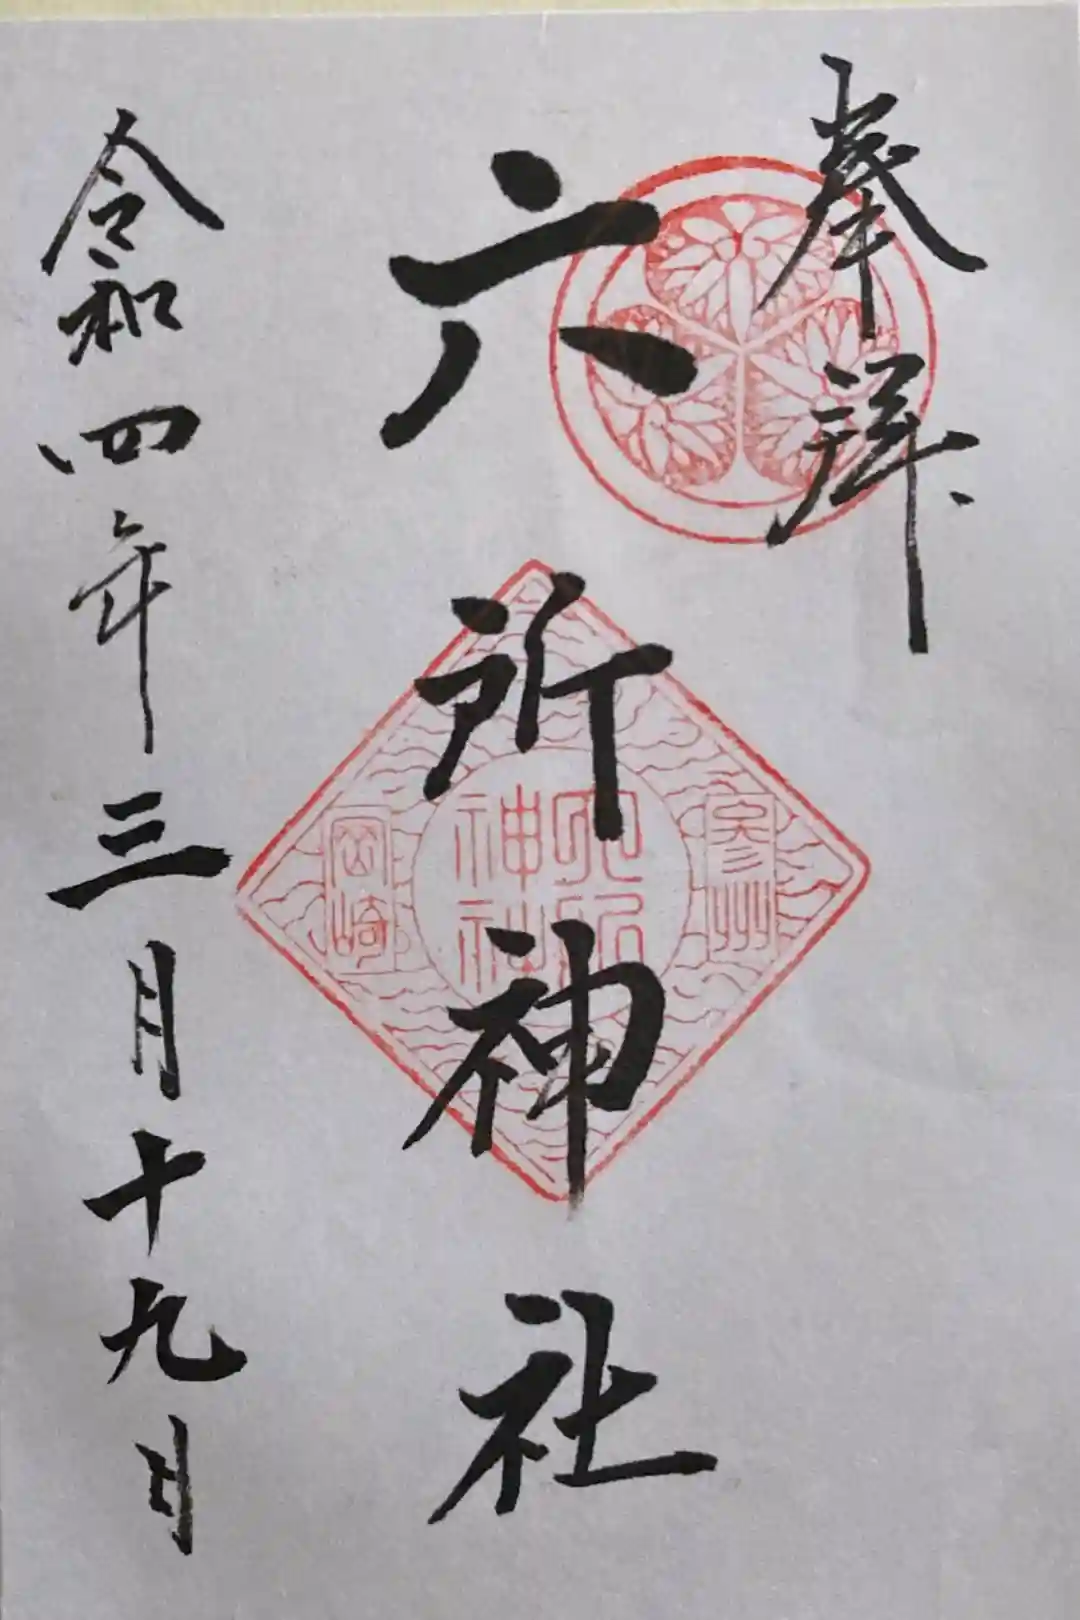 奉拝
六所神社
令和四年三月十九日
参州
六所
神社
岡崎